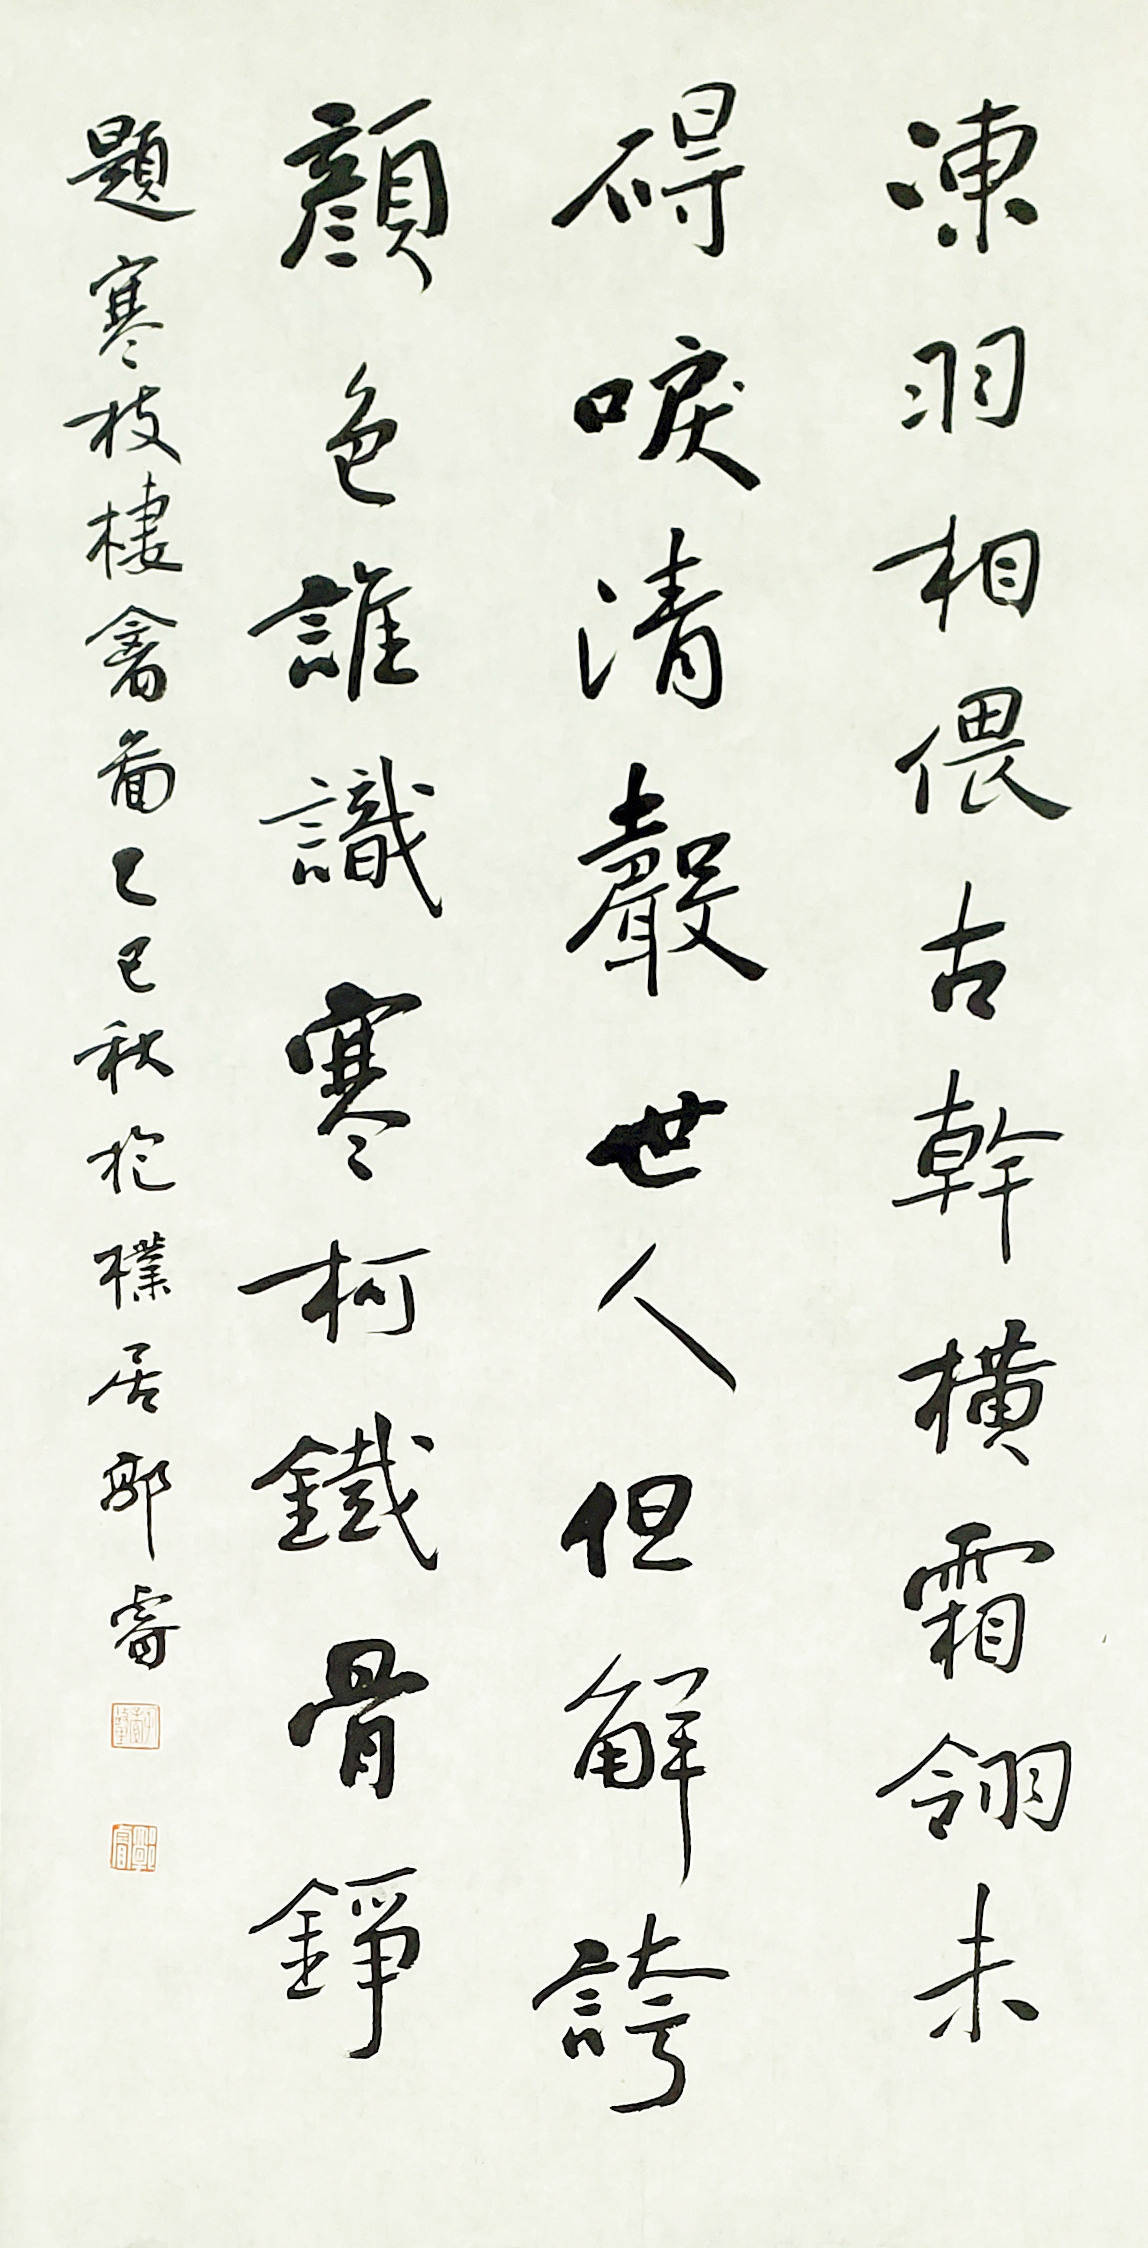 凍羽相偎古幹橫霜翎未
碍唳清聲世人但解誇
顏色誰識寒柯鐵骨錚
題寒枝棲禽圖乙巳秋於樸居郭睿